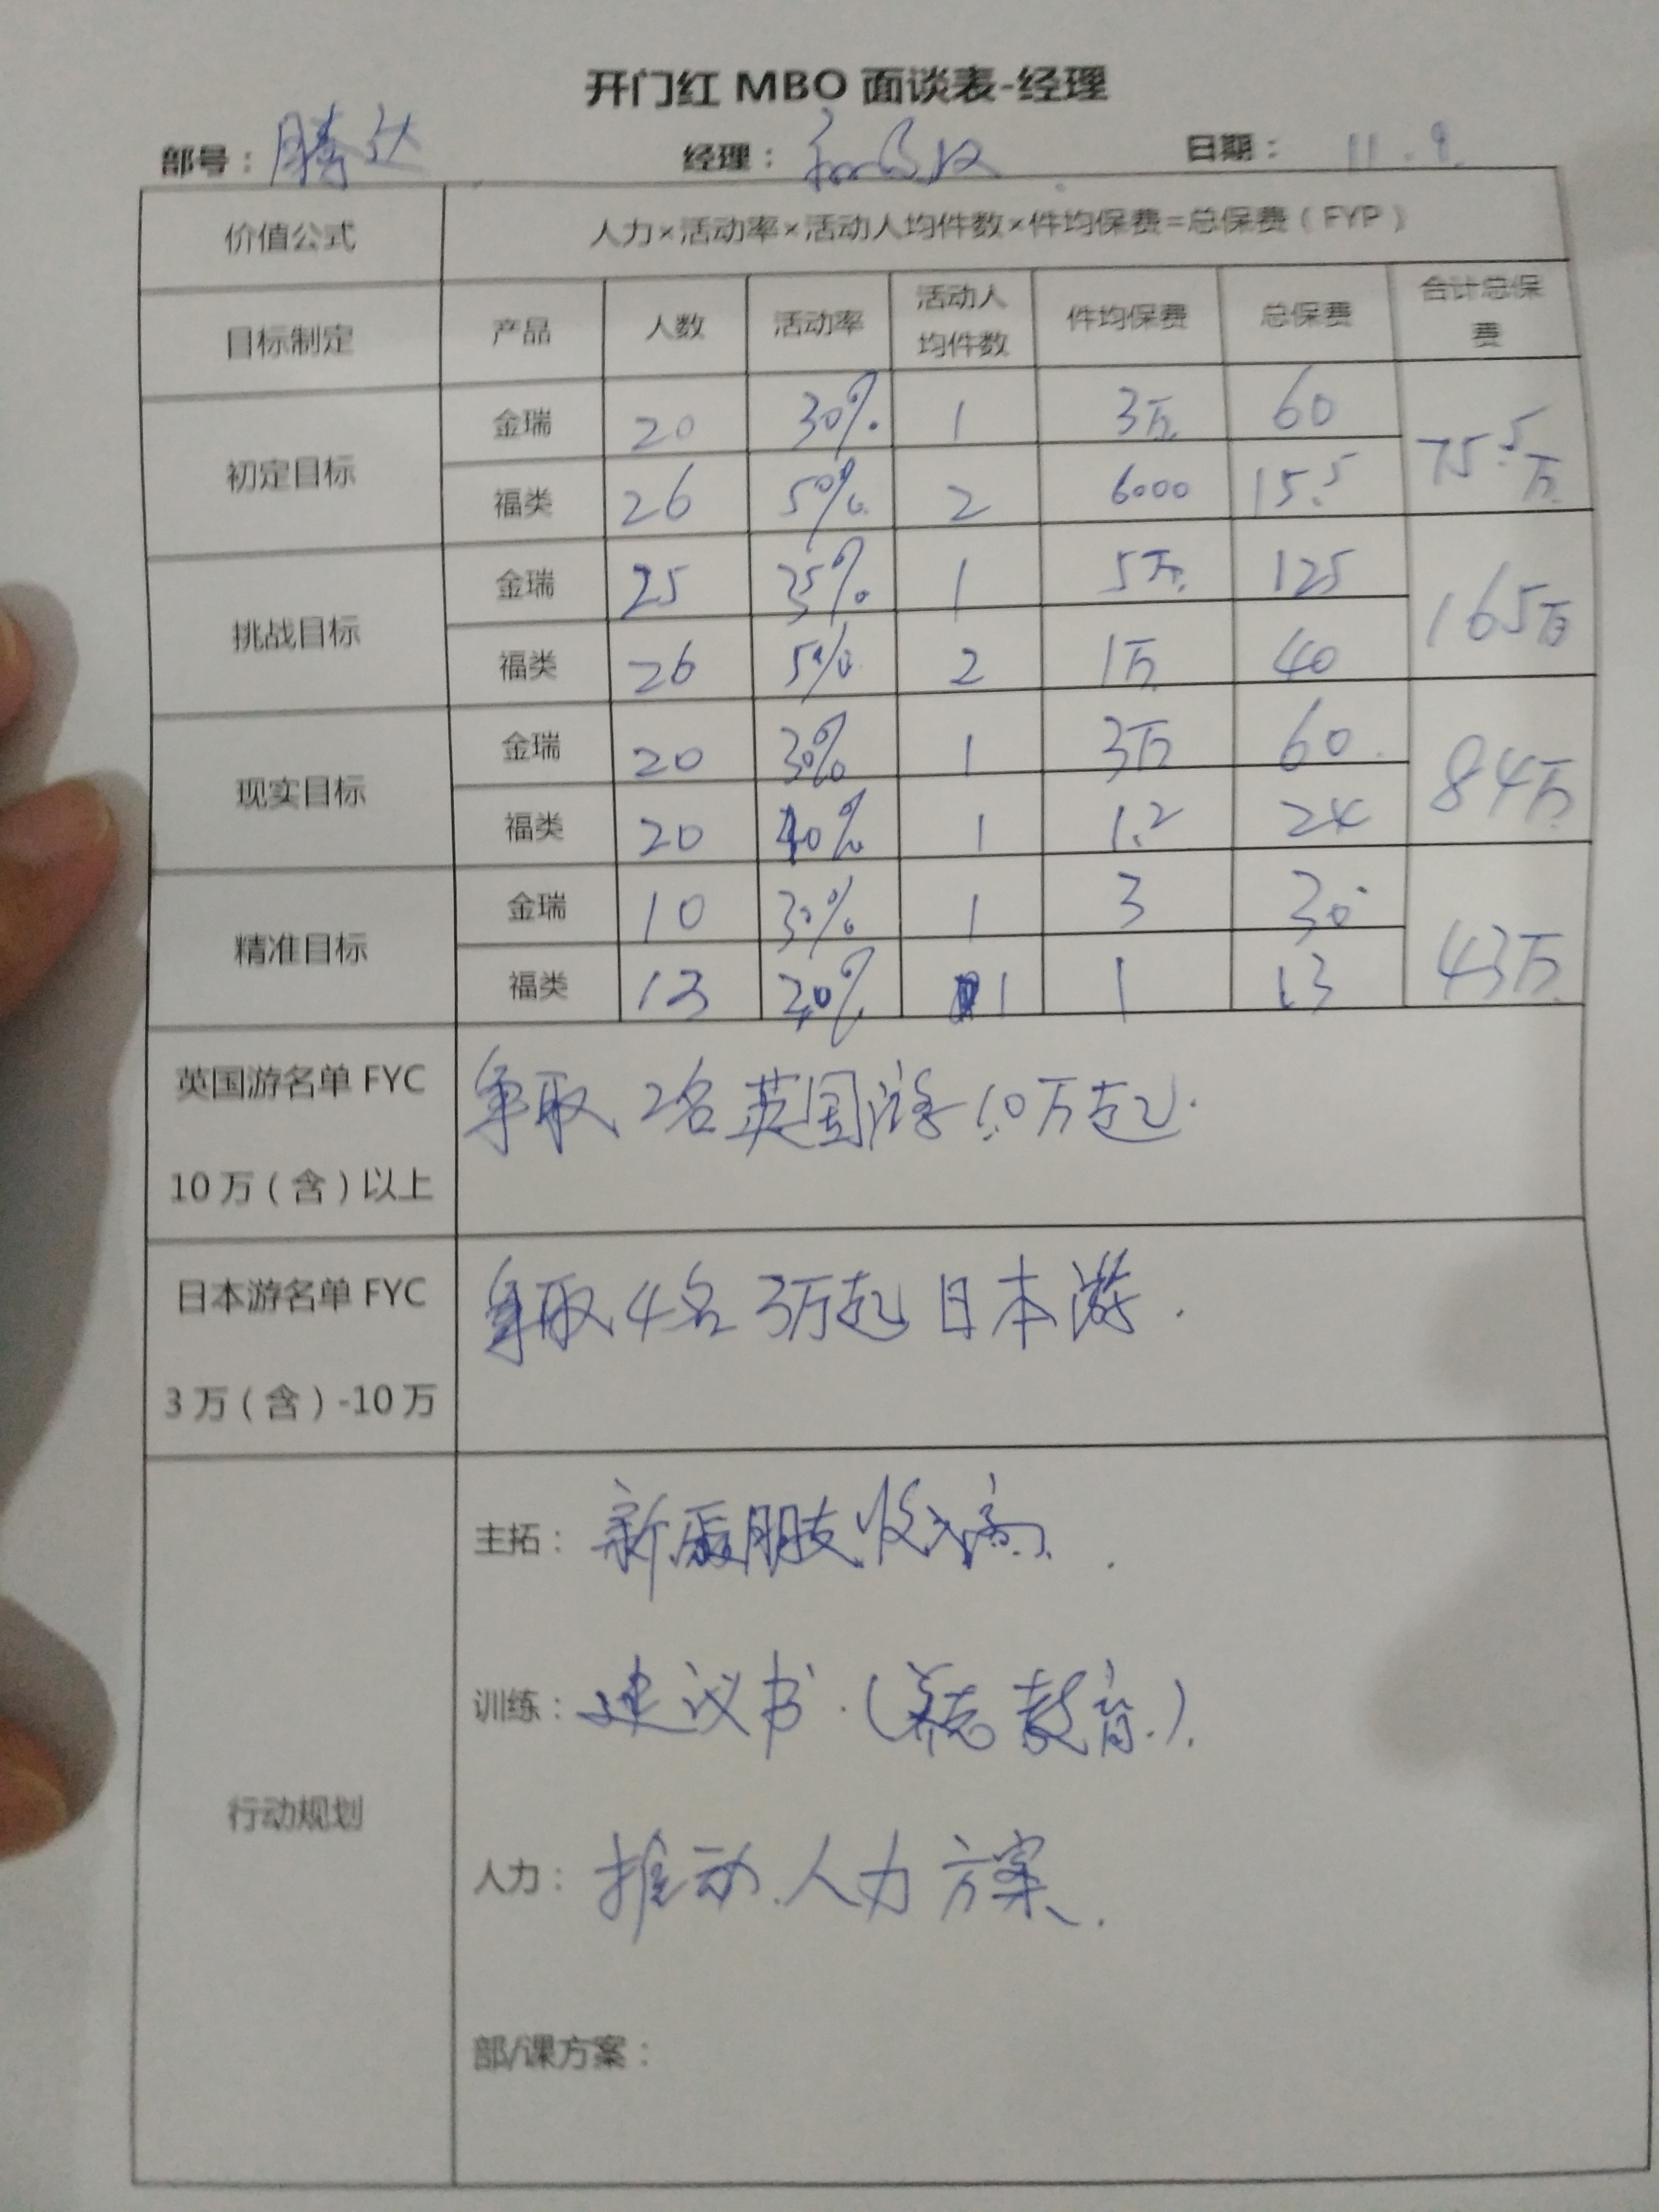 开门红 MBO 面谈表-经理
部号：腾达 经理： 日期：11.9.
价值公式 人力×活动率×活动人均件数×件均保费=总保费（FYP）
目标制定 产品 人数 活动率 活动人均件数 件均保费 总保费 合计总保费
初定目标 金瑞 20 30% 1 3万 60 75.5万
福类 26 50% 2 6000 15.5
挑战目标 金瑞 25 35% 1 5万 125 165万
福类 26 50% 2 1万 40
现实目标 金瑞 20 30% 1 3万 60 84万
福类 20 40% 1 1.2 24
精准目标 金瑞 10 30% 1 3 30 43万
福类 13 20% 1 1 13
英国游名单 FYC
10万（含）以上
争取2名英国游10万起.
日本游名单 FYC
3万（含）-10万
争取4名3万起日本游.
行动规划
主拓： 新 朋友收 高.
训练：建议书.(养老 教育.).
人力：推动人力方案.
部/课方案：